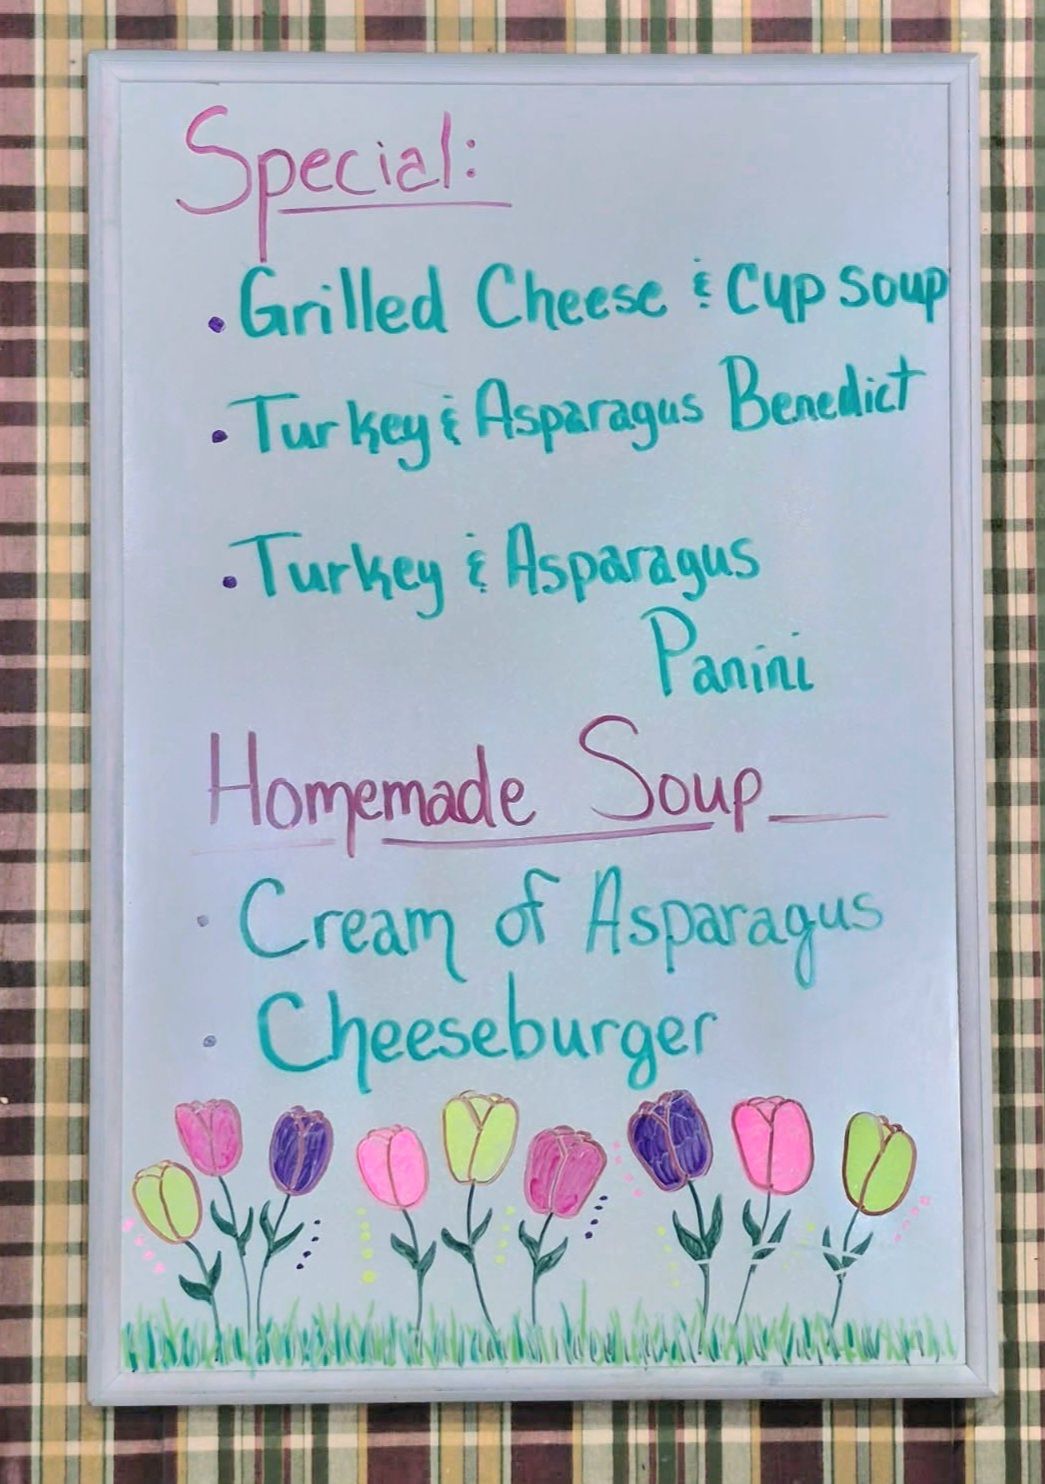 Special:
• Grilled Cheese & Cup Soup
• Turkey & Asparagus Benedict
• Turkey & Asparagus
Panini
Homemade Soup
• Cream of Asparagus
• Cheeseburger